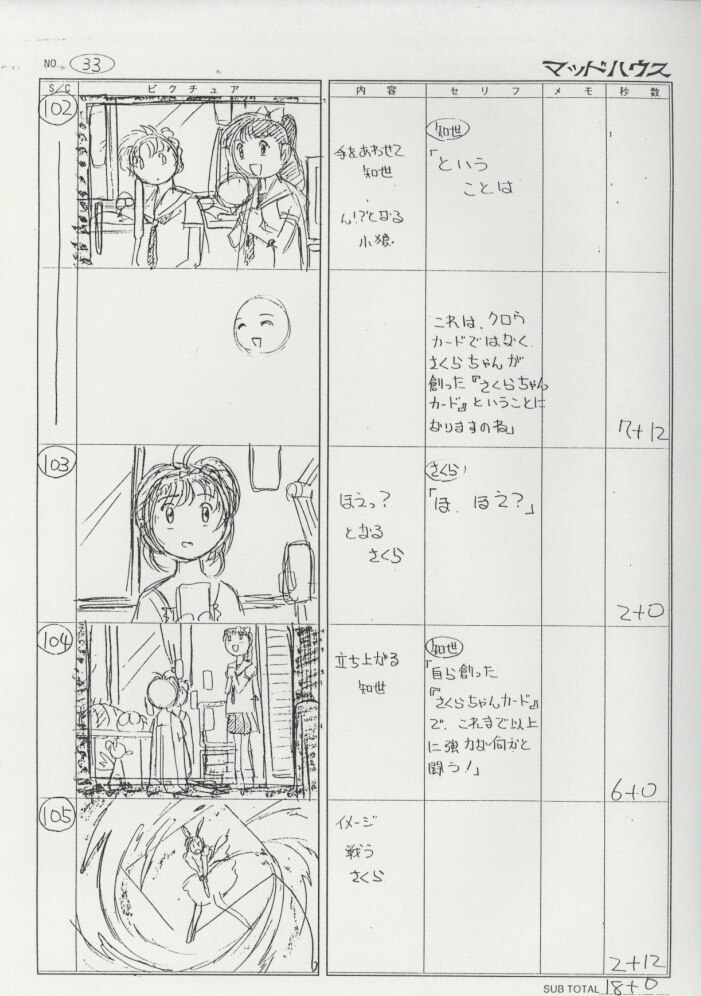 NO. 33
マッドハウス
S/C ピクチュア 内容 セリフ メモ 秒数
102
手をあわせて
知世
ん!?となる
小狼
知世
「という
ことは
これは、クロウ
カードではなく、
さくらちゃんが
創った『さくらちゃん
カード』ということに
なりますのね」
7+12
103
ほえっ?
となる
さくら
さくら
「ほ、ほえ?」
2+0
104
立ち上がる
知世
知世
「自ら創った
『さくらちゃんカード』
で、これまで以上
に強力な何かと
闘う!」
6+0
105
イメージ
戦う
さくら
2+12
SUB TOTAL 18+0